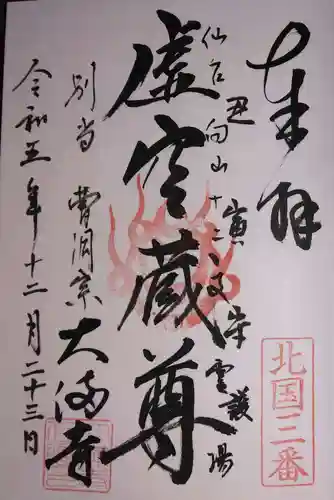 奉拝
北国三番
仙台向山十二支守霊護場
丑
寅
虚空蔵尊
別当 曹洞宗 大満寺
令和五年十二月二十三日